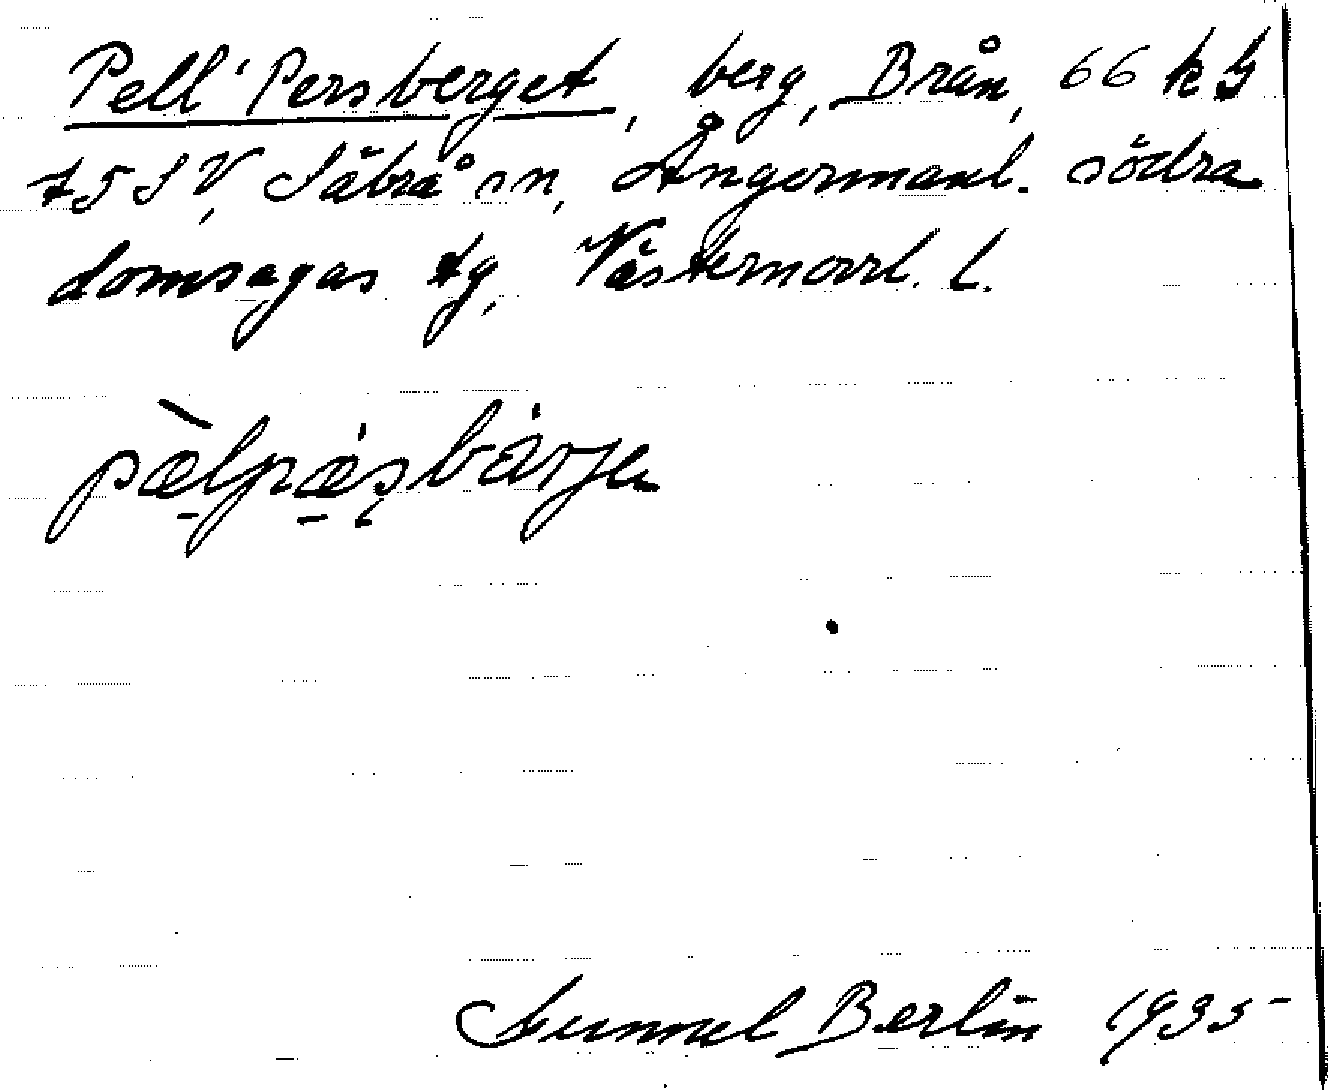 Pell' Persberget, berg, Brån, 66 k G
75 SV, Säbrå sn, Ångermanl. södra
domsagas tg, Västernorrl. l.
pæ̀lpæșbárje
Gunnel Berlin 1935